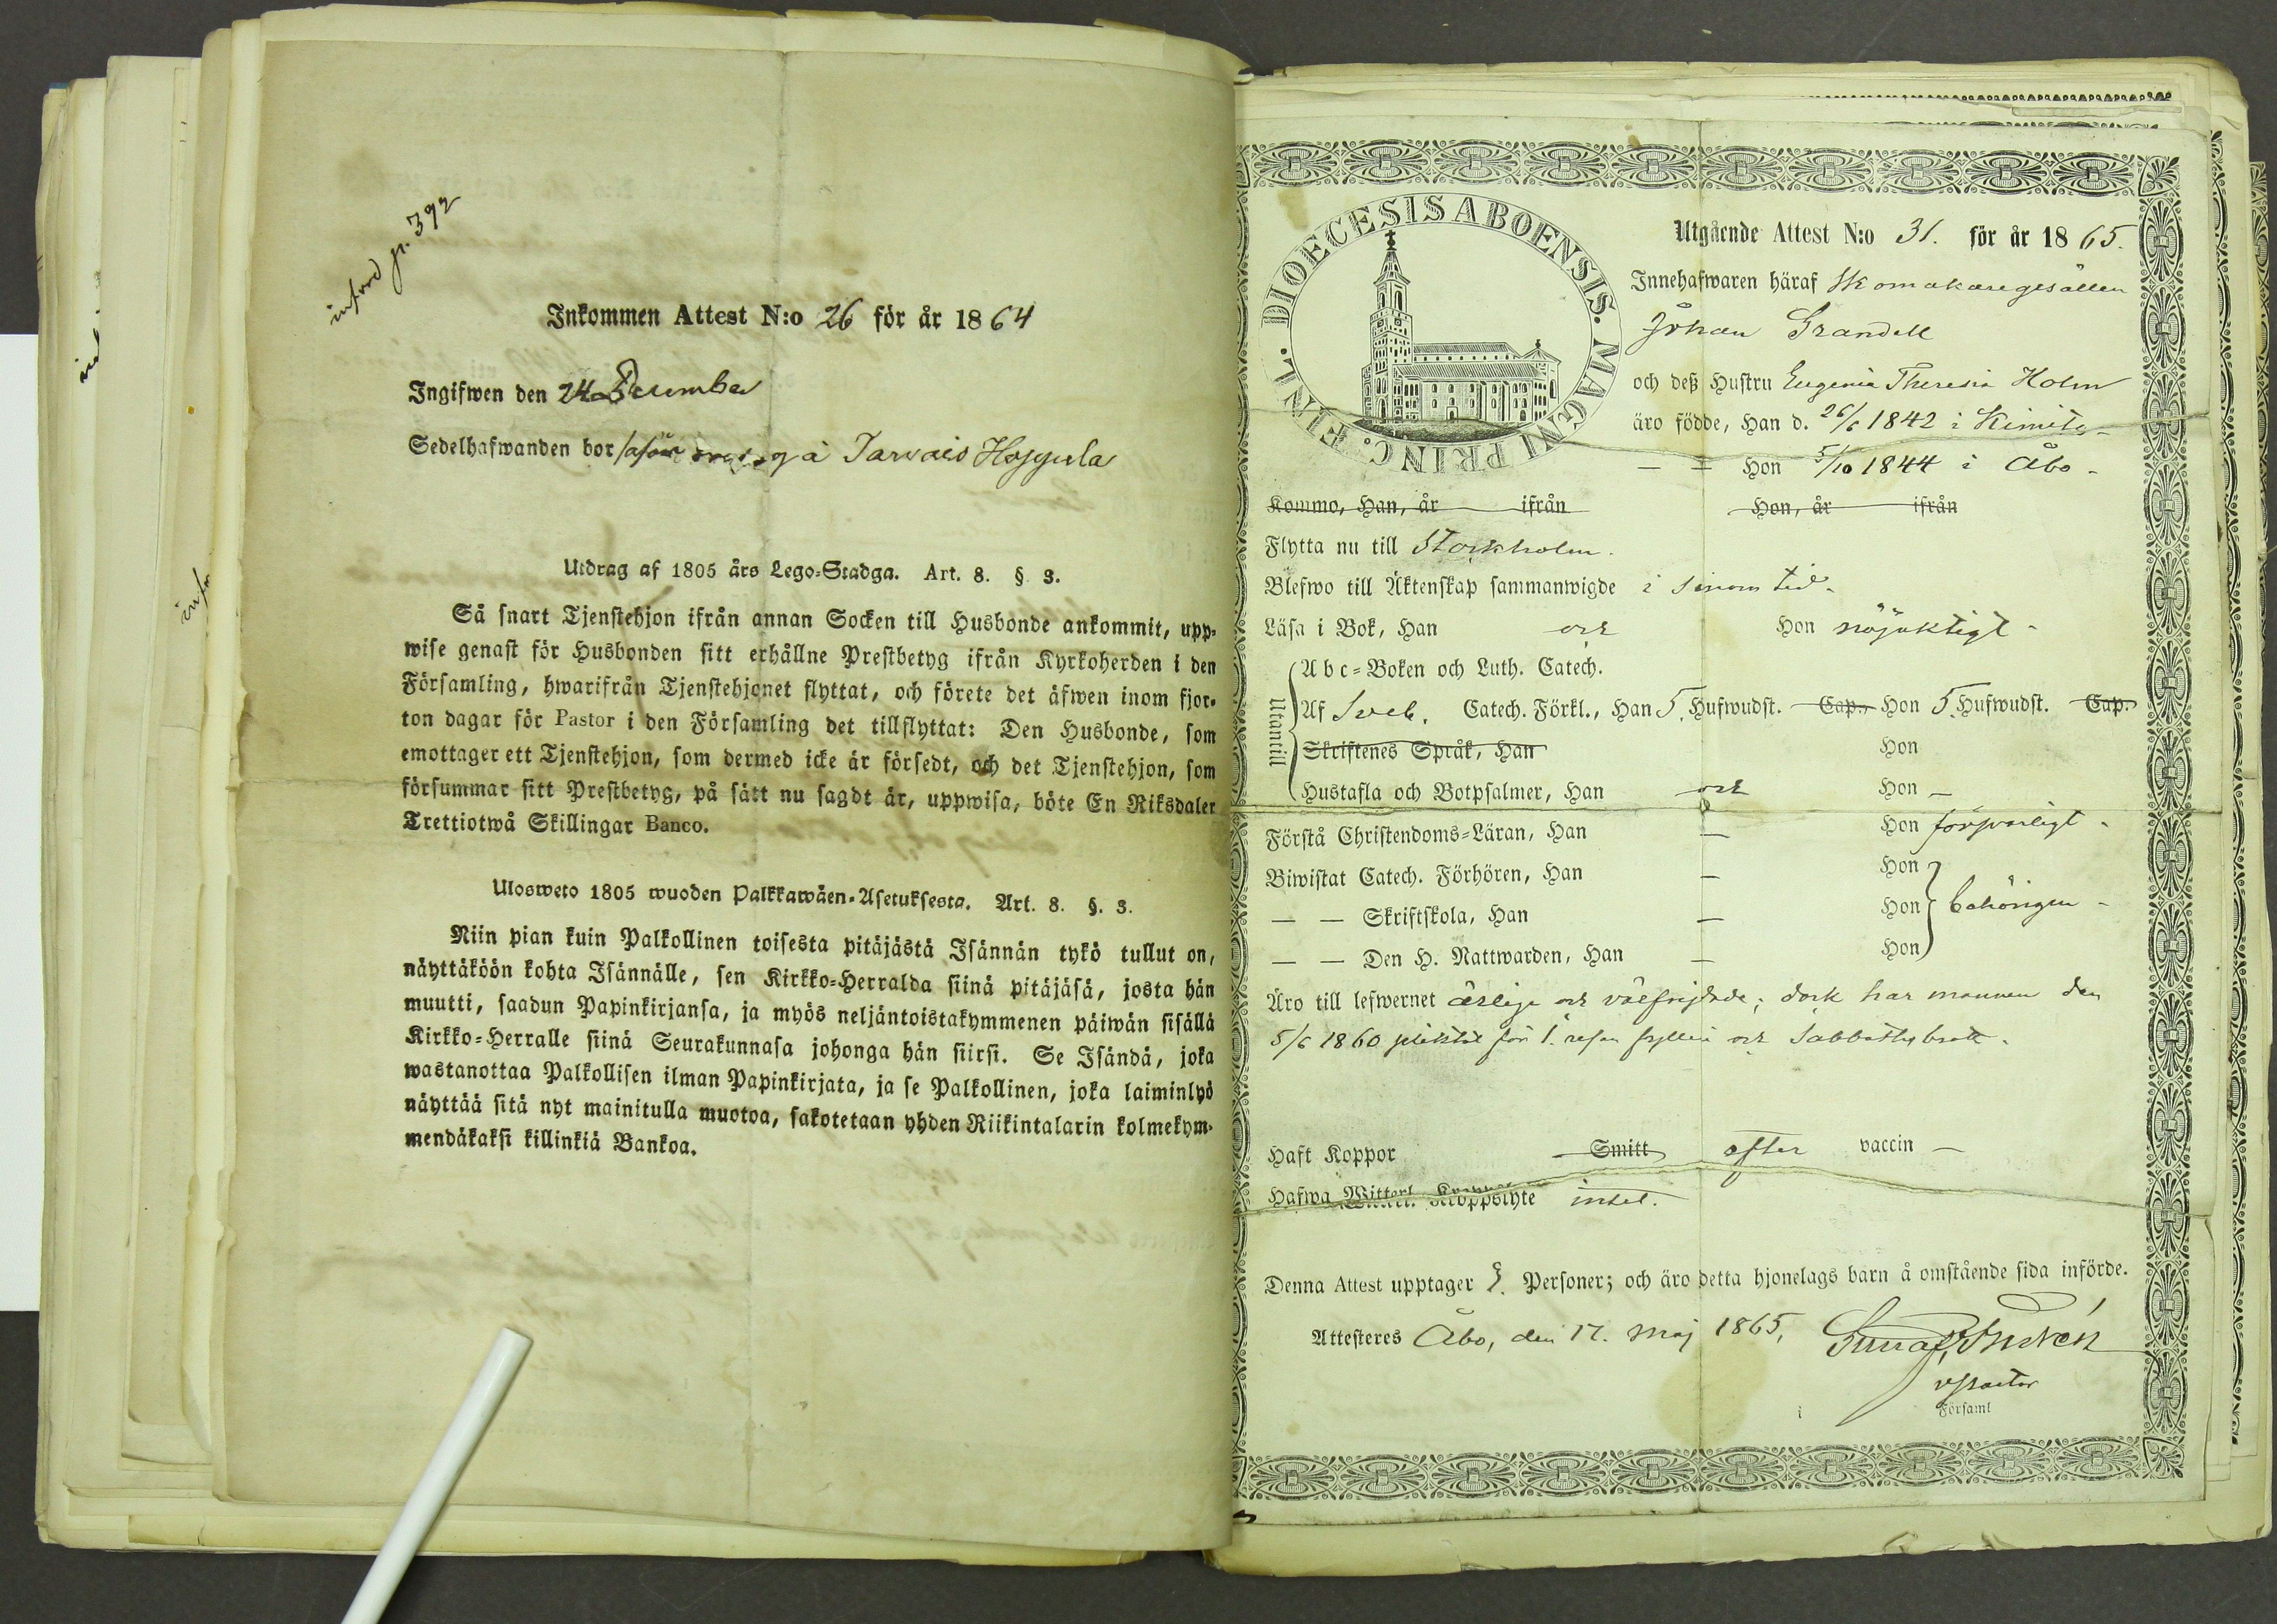 införd p. 392
Inkommen Attest N:o 26 för år 1864
Ingifwen den 24 December
Sedelhafwanden bor å Tarvais Hoggula
Utdrag af 1805 års Lego-Stadga. Art. 8. § 3.
Så snart Tjenstehjon ifrån annan Socken till Husbonde ankommit, upp-
wise genast för Husbonden sitt erhållne Prestbetyg ifrån Kyrkoherden i den
Församling, hwarifrån Tjenstehjonet flyttat, och förete det äfwen inom fjor-
ton dagar för Pastor i den Församling det tillflyttat: Den Husbonde, som
emottager ett Tjenstehjon, som dermed icke är försedt, och det Tjenstehjon, som
försummar sitt Prestbetyg, på sätt nu sagdt är, uppwisa, böte En Riksdaler
Trettiotwå Skillingar Banco.
Ulosweto 1805 wuoden Palkkawäen-Asetuksesta. Art. 8. §. 3.
Niin pian kuin Palkollinen toisesta pitäjästä Isännän tykö tullut on,
näyttäköön kohta Isännälle, sen Kirkko-Herralda siinä pitäjäsä, josta hän
muutti, saadun Papinkirjansa, ja myös neljäntoistakymmenen päiwän sisällä
Kirkko-Herralle siinä Seurakunnasa johonga hän siirsi. Se Isändä, joka
wastanottaa Palkollisen ilman Papinkirjata, ja se Palkollinen, joka laiminlyö
näyttää sitä nyt mainitulla muotoa, sakotetaan yhden Riikintalarin kolmekym-
mendäkaksi killinkiä Bankoa.
DIOECESIS ABOENSIS. MAGNI PRINC. FINL.
Utgående Attest N:o 31. för år 1865.
Innehafwaren häraf Skomakaregesällen
Johan Grandell
och deß Hustru Eugenia Theresia Holm
äro födde, Han d. 26/6 1842 i Kimito
— — Hon 5/10 1844 i Åbo
Kommo, Han, år ifrån Hon, år ifrån
Flytta nu till Stockholm.
Blefwo till Äktenskap sammanwigde i sinom tid.
Läsa i Bok, Han och Hon nöjaktigt
Utantill
Abc-Boken och Luth. Catech.
Af Sveb. Catech. Förkl., Han 5. Hufwudst. Cap., Hon 5. Hufwudst. Cap.
Skriftenes Språk, Han Hon
Hustafla och Botpsalmer, Han och Hon —
Förstå Christendoms-Läran, Han — Hon försvarligt
Biwistat Catech. Förhören, Han — Hon
— — Skriftskola, Han — Hon behörigen
— — Den H. Nattwarden, Han — Hon
Äro till lefwernet ärlige och välfrejdade; dock har mannen den
5/6 1860 pliktat för 1. resan fylleri och Sabbathsbrott.
Haft Koppor Smitt efter vaccin —
Hafwa Witterl. Kroppslyte intet.
Denna Attest upptager 2. Personer; och äro detta hjonelags barn å omstående sida införde.
Attesteres Åbo, den 17. Maj 1865,
v Pastor
i Församl